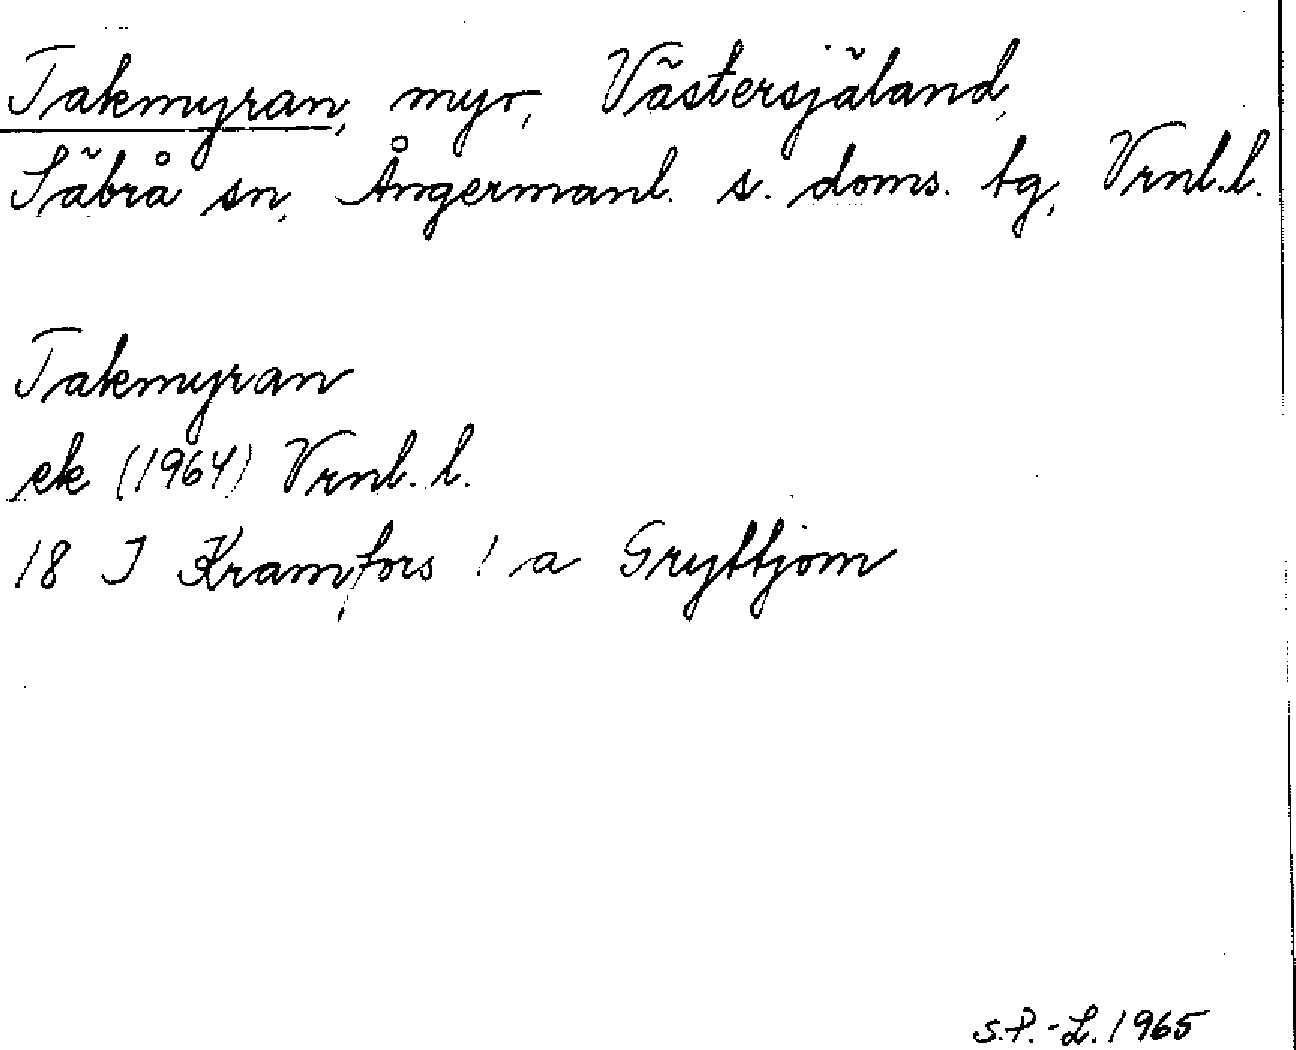 Takmyran, myr, Västersjäland,
Säbrå sn, Ångermanl. s. doms. tg, Vrnl.l.
Takmyran
ek (1964) Vrnl. l.
18 I Kramfors 1 a Gryttjom
S.P.-L. 1965